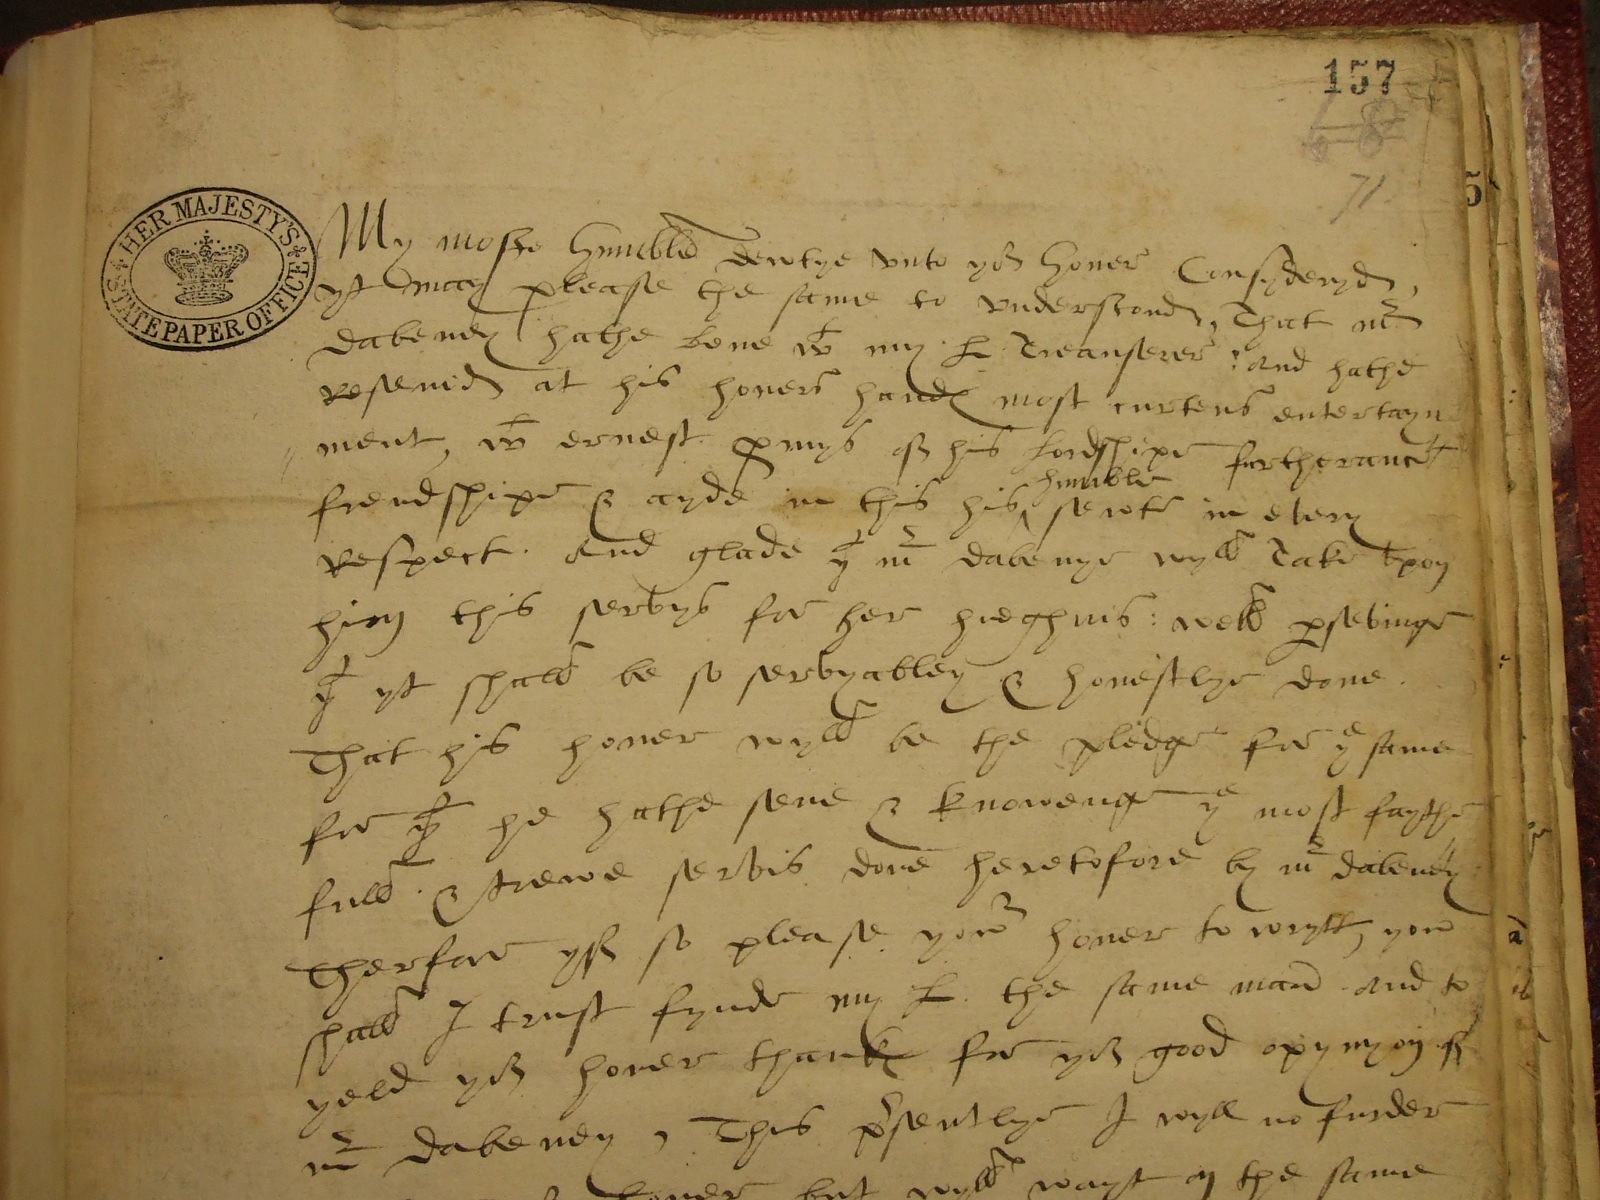 157
68
71
5
HER MAJESTY'S
STATE PAPER OFFICE
My moste humble dewtye vnto yor honer Consyderyd,
yt may please the same to vnderstond, That mr
dabeney hathe bene wt my L Treauserer: and hathe
reseuid at his honers handes most curteus entertayn
ment, wt ernest promys of his Lordshipe furtherance
frendshipe & ayde in this his humble sewte in every
Respect. And glade yt mr dabenye wyll Take vpon
him this servys for her hieghnis: well persevinge
yt yt shall be so servyabley & honestlye done.
That his honer wyll be the pledge for ye same
for yt he hathe sene & knowenge ye most faythe
full & trewe servis done heretofore by mr dabeney
Therfore yf so please your honer to wrytt, yow
shall I trust fynde my L. the same man and to
yeld yor honer thankes for yor good opynyon of
mr dabeney, This presentlye I wyll no furder
honer but wyll wayt on the same